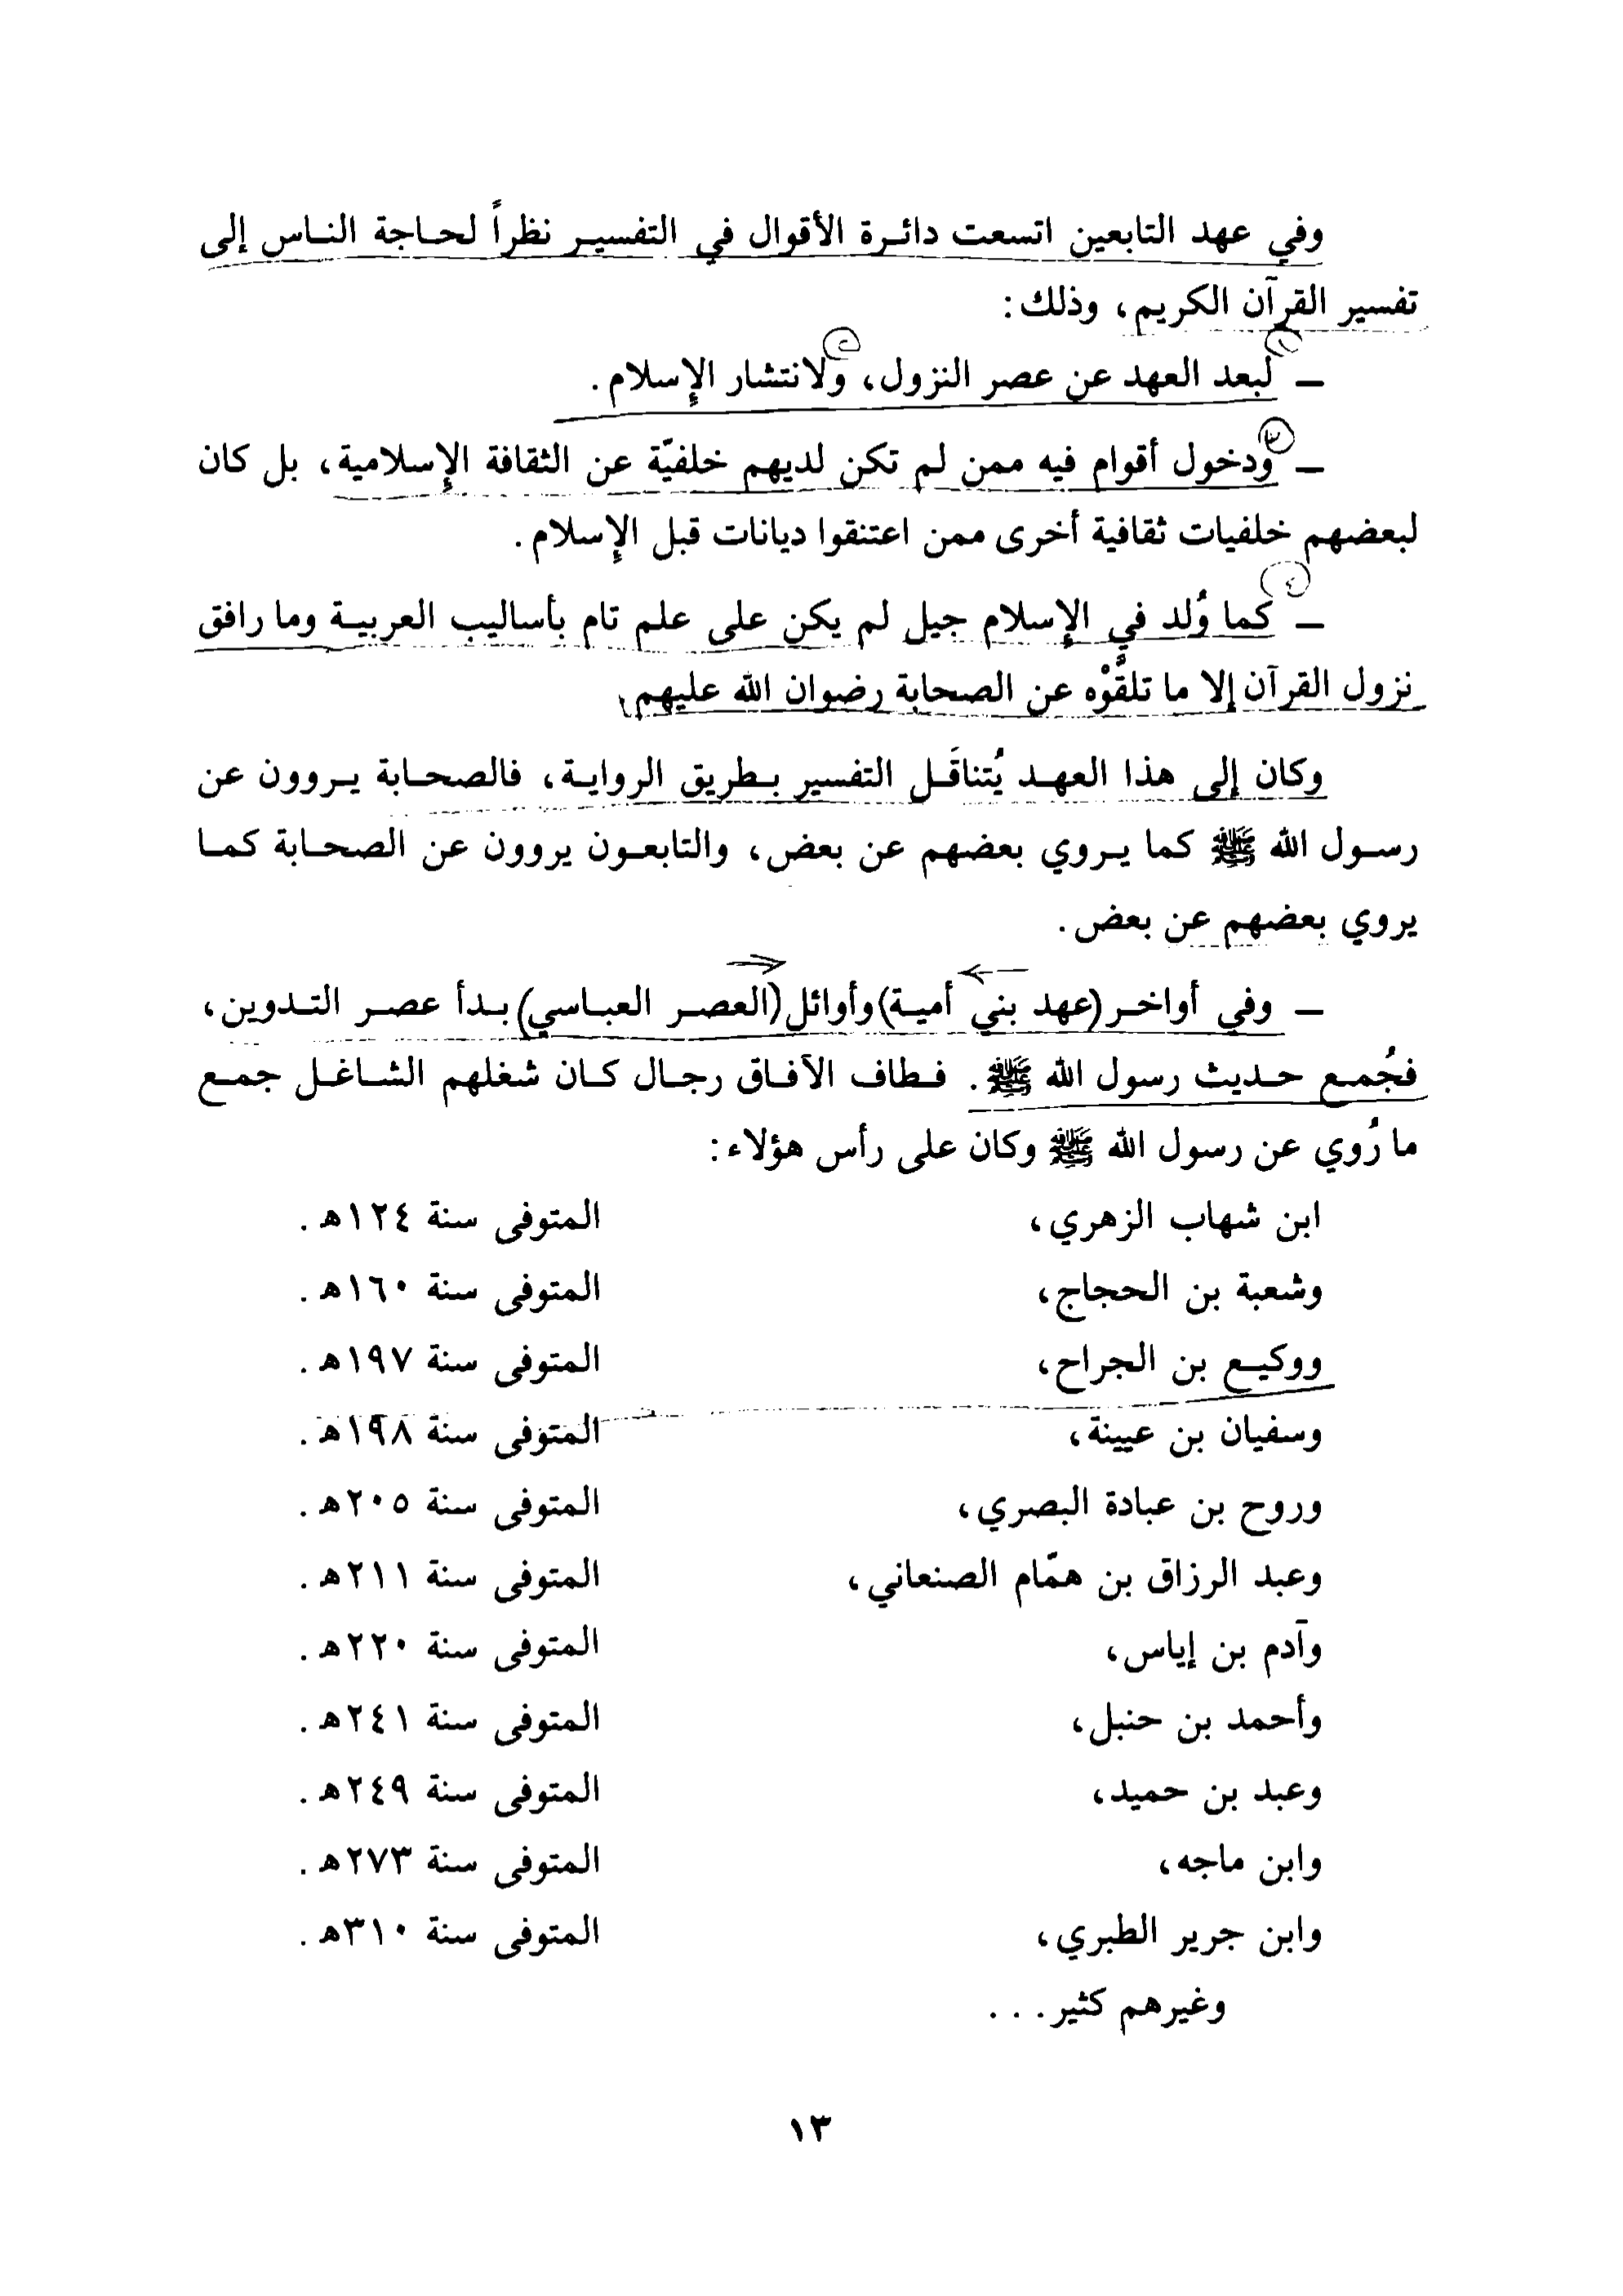 وفي عهد التابعين اتسعت دائرة الأقوال في التفسير نظراً لحاجة الناس إلى
تفسير القرآن الكريم، وذلك:
ـ لبعد العهد عن عصر النزول، ولانتشار الإسلام.
ـ ودخول أقوام فيه ممن لم تكن لديهم خلفيّة عن الثقافة الإسلامية، بل كان
لبعضهم خلفيات ثقافية أخرى ممن اعتنقوا ديانات قبل الإسلام.
ـ كما وُلد في الإسلام جيل لم يكن على علم تام بأساليب العربية وما رافق
نزول القرآن إلا ما تلقَّوْه عن الصحابة رضوان الله عليهم.
وكان إلى هذا العهد يُتناقَل التفسير بطريق الرواية، فالصحابة يروون عن
رسول الله ﷺ كما يروي بعضهم عن بعض، والتابعون يروون عن الصحابة كما
يروي بعضهم عن بعض.
ـ وفي أواخر (عهد بني أمية) وأوائل (العصر العباسي) بدأ عصر التدوين،
فجُمع حديث رسول الله ﷺ. فطاف الآفاق رجال كان شغلهم الشاغل جمع
ما رُوي عن رسول الله ﷺ وكان على رأس هؤلاء:
ابن شهاب الزهري، المتوفى سنة ١٢٤هـ.
وشعبة بن الحجاج، المتوفى سنة ١٦٠هـ.
ووكيع بن الجراح، المتوفى سنة ١٩٧هـ.
وسفيان بن عيينة، المتوفى سنة ١٩٨هـ.
وروح بن عبادة البصري، المتوفى سنة ٢٠٥هـ.
وعبد الرزاق بن همّام الصنعاني، المتوفى سنة ٢١١هـ.
وآدم بن إياس، المتوفى سنة ٢٢٠هـ.
وأحمد بن حنبل، المتوفى سنة ٢٤١هـ.
وعبد بن حميد، المتوفى سنة ٢٤٩هـ.
وابن ماجه، المتوفى سنة ٢٧٣هـ.
وابن جرير الطبري، المتوفى سنة ٣١٠هـ.
وغيرهم كثير...
١٣